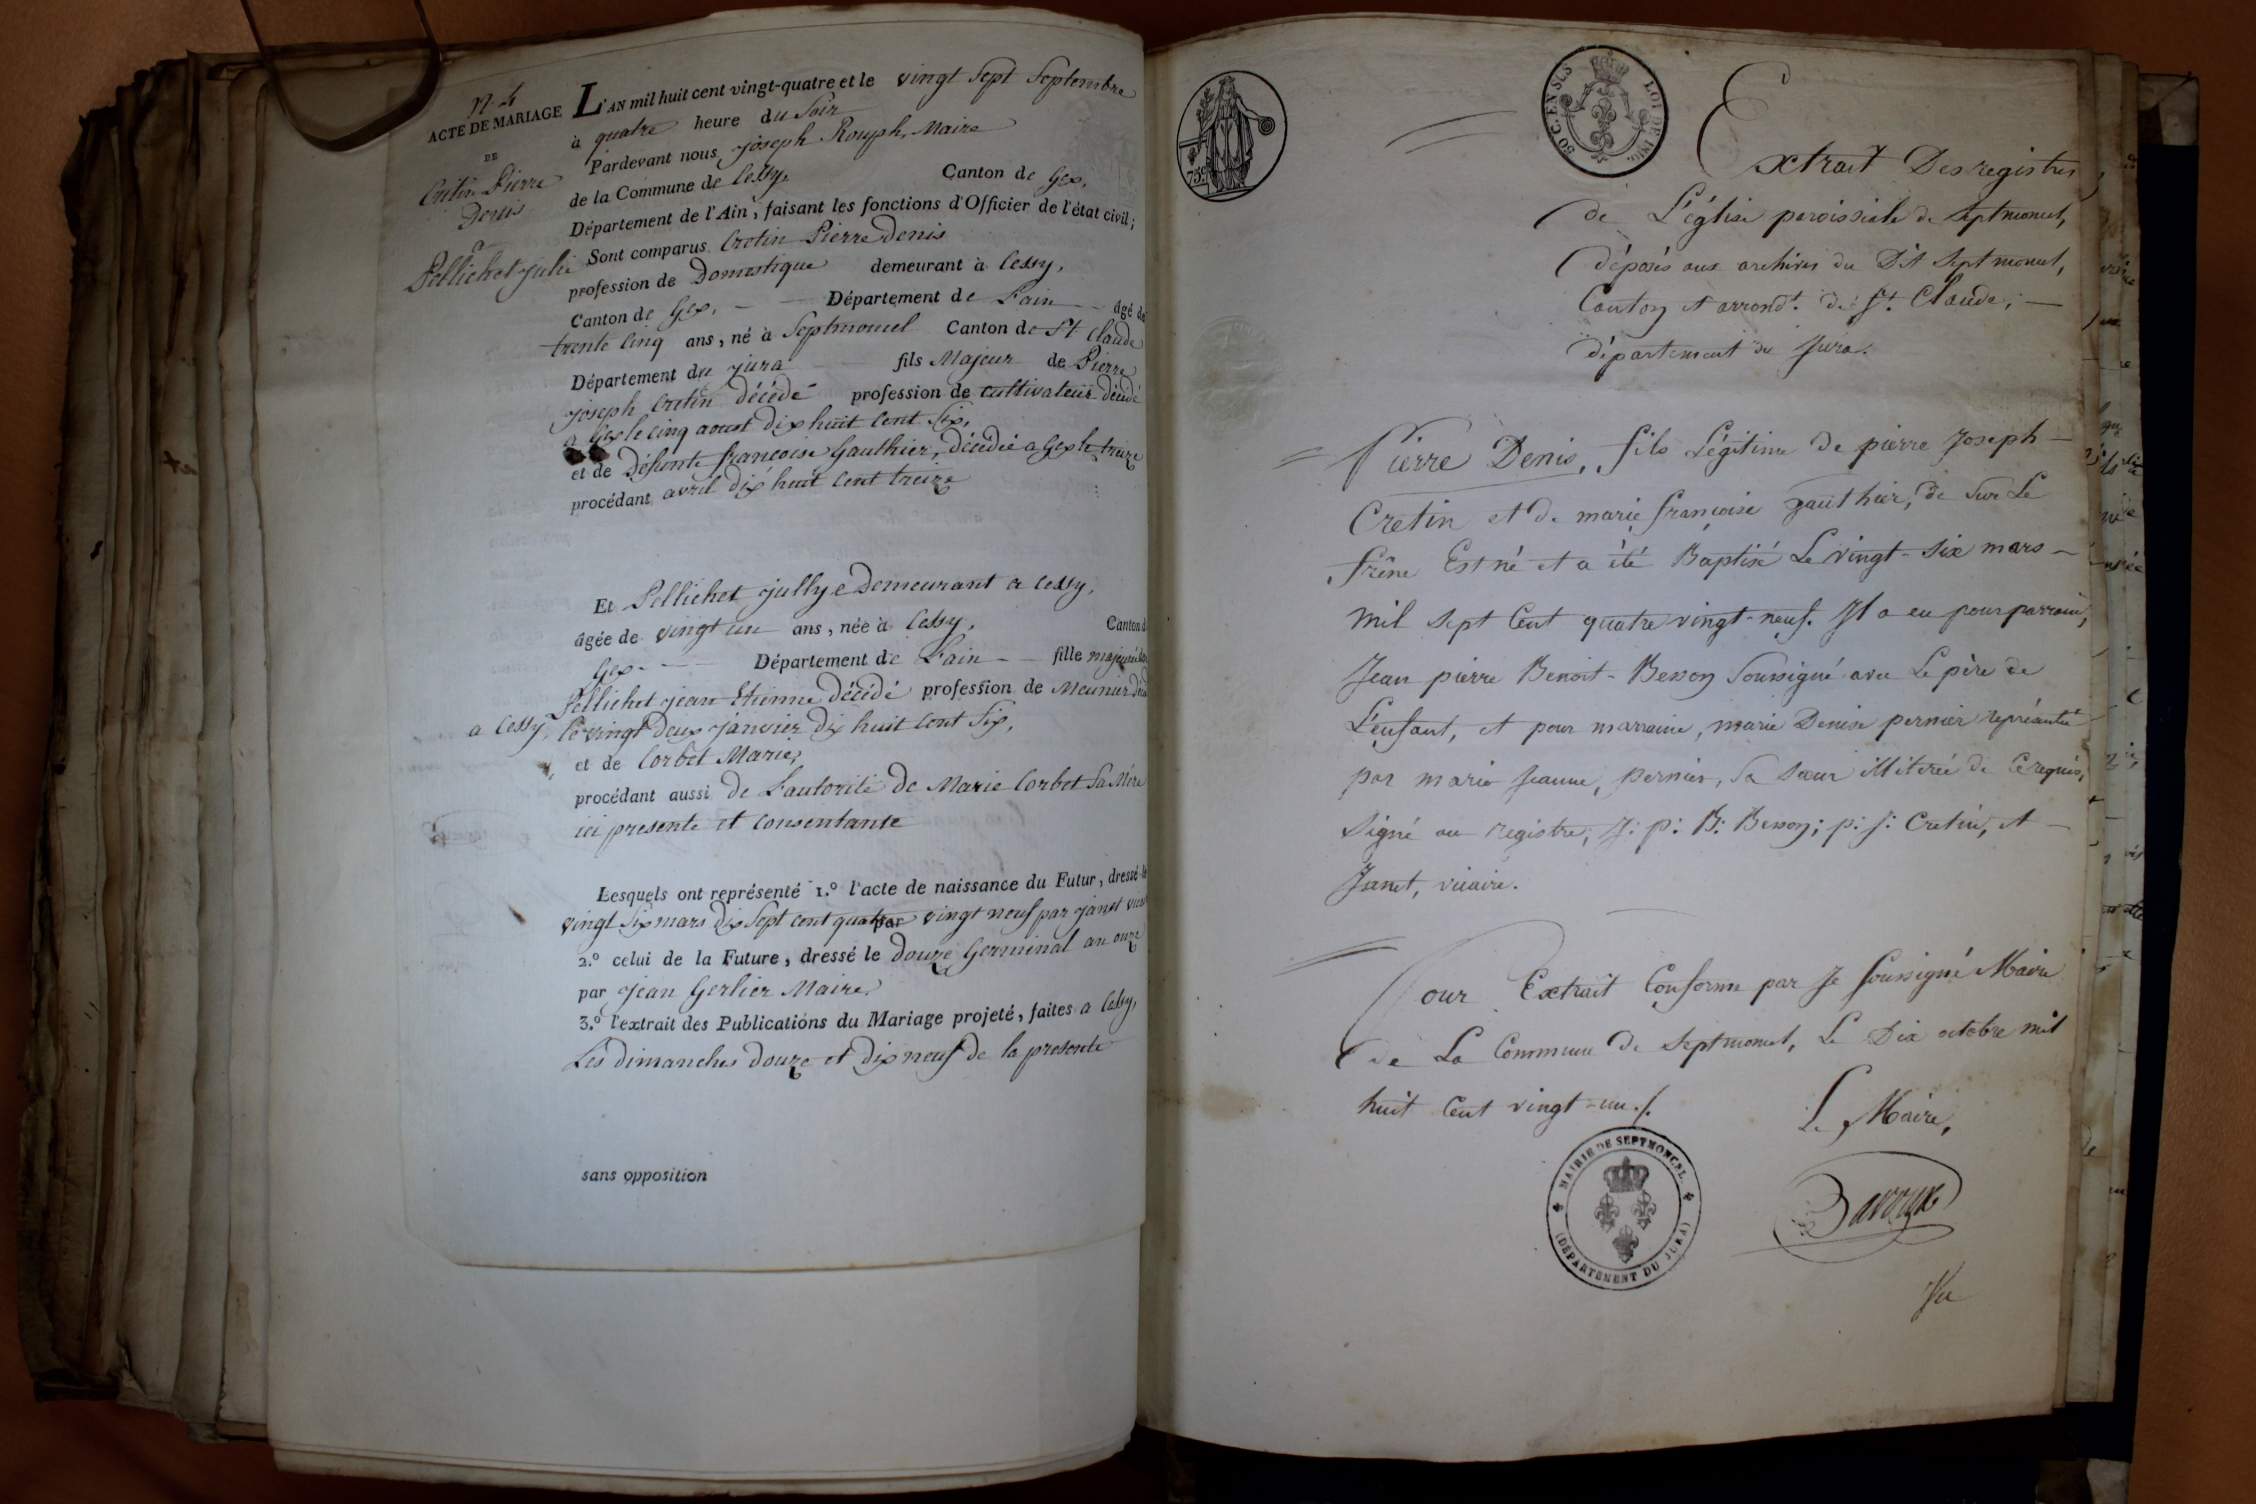 N.º 4
ACTE DE MARIAGE
DE
Cretin Pierre
Denis
a
Pellichet Julie
L'AN mil huit cent vingt-quatre et le vingt sept Septembre
à quatre heure du Soir
Pardevant nous Joseph Rouph, Maire
de la Commune de Cessy, Canton de Gex,
Département de l'Ain, faisant les fonctions d'Officier de l'état civil;
Sont comparus Cretin Pierre Denis
profession de Domestique demeurant à Cessy,
Canton de Gex, Département de L'ain âgé de
trente cinq ans, né à Septmoncel Canton de St Claude
Département du jura fils Majeur de Pierre
Joseph Cretin décédé profession de cultivateur décédé
a Gex le cinq aoust dix huit cent Six,
et de Défunte françoise Gauthier, décédée a Gex le treize
procédant avril dix huit cent treize
Et Pellichet Jullye Demeurant a Cessy,
âgée de vingt un ans, née à Cessy, Canton d
Gex Département de L'ain fille majeure
Pellichet Jean Etienne décédé profession de Meunier
a Cessy, le vingt Deux janvier dix huit cent Six,
et de Corbet Marie,
procédant aussi de L'autorité de Marie Corbet Sa Mère
ici presente et consentante
Lesquels ont représenté 1.º l'acte de naissance du Futur, dressé le
vingt Six mars dix Sept cent quatre par vingt neuf par Janet
2.º celui de la Future, dressé le douze Germinal an onze
par Jean Gerlier Maire,
3.º l'extrait des Publications du Mariage projeté, faites a Cessy,
Les dimanches douze et dix neuf de la presente
sans opposition
75 c
50 C. EN SUS LOI DE 1816.
Extrait Des registres
de L'église paroissiale de Septmoncel,
déposés aux archives du Dit Septmoncel,
Canton et arrond.t de St. Claude;
département du Jura.
Pierre Denis, fils Légitime de pierre Joseph
Cretin et de marie françoise gauthier, de Sur Le
frêne Est né et a été Baptisé Le vingt-six mars
mil sept Cent quatre vingt-neuf. Il a eu pour parrain,
Jean pierre Benoit-Besson Soussigné avec Le père de
L'enfant, et pour marraine, marie Denise pernier représentée
par marie Jeanne, pernier, Sa Sœur illiterée de ce requise,
Signé au registre, J: p: B: Besson; p: j: Cretin, et
Janet, vicaire.
Pour Extrait Conforme par Je Soussigné Maire
de La Commune de Septmoncel, Le Dix octobre mil
huit Cent vingt-un./.
Le Maire,
MAIRIE DE SEPTMONCEL
(DÉPARTEMENT DU JURA)